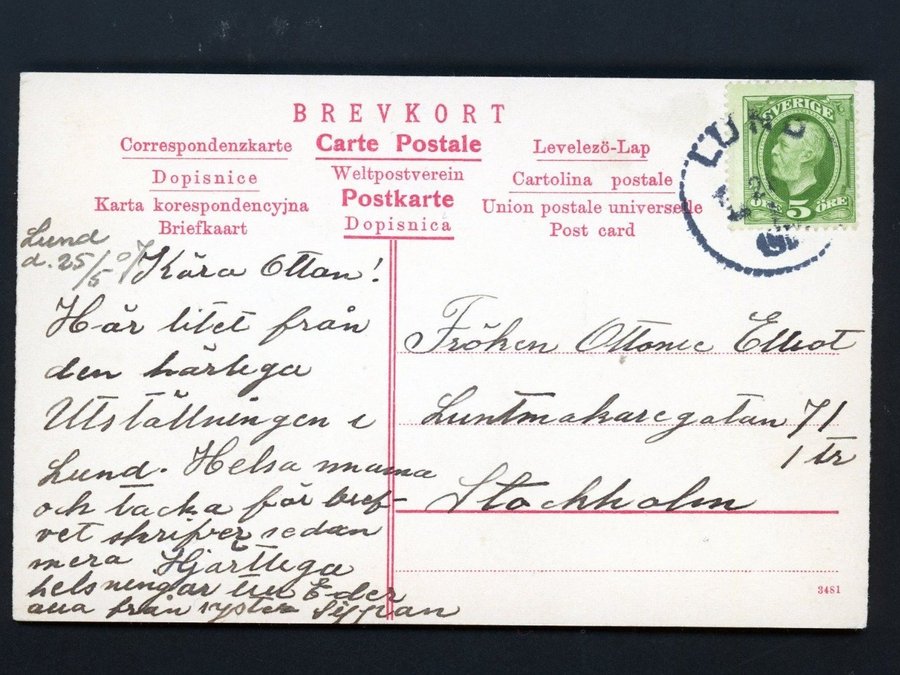 BREVKORT
Correspondenzkarte Carte Postale Levelezö-Lap
Dopisnice Weltpostverein Cartolina postale
Karta korespondencyjna Postkarte Union postale universelle
Briefkaart Dopisnica Post card
SVERIGE
5
ÖRE
LUND
Lund
d. 25/5 07
Kära Ottan!
Här litet från
den härliga
Utställningen i
Lund. Helsa mama
och tacka för bref-
vet skrifver sedan
mera Hjärtliga
helsningar till Eder
alla från syster
Fröken Ottonie Elliot
Luntmakaregatan 71
1 tr
Stockholm
3481